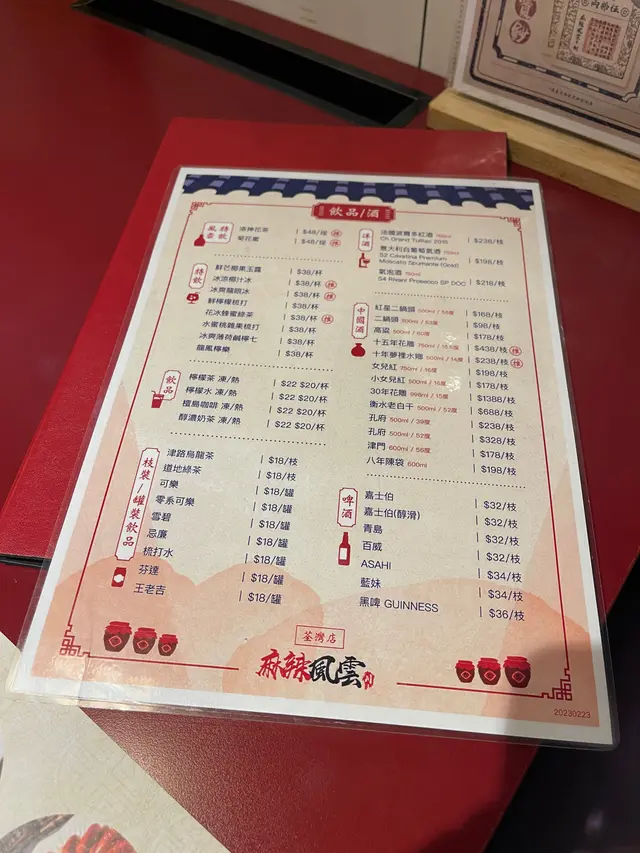 飲品/酒
風雲特飲
洛神花茶 $48/煲 推
菊花蜜 $48/煲 推
特飲
鮮芒椰果玉露 $38/杯
冰涼椰汁冰 $38/杯 推
冰爽龍眼冰 $38/杯 推
鮮檸檬梳打 $38/杯
花冰蜂蜜綠茶 $38/杯 推
水蜜桃雜果梳打 $38/杯
冰爽薄荷鹹檸七 $38/杯
龍鳳檸樂 $38/杯
飲品
檸檬茶 凍/熱 $22 $20/杯
檸檬水 凍/熱 $22 $20/杯
檀島咖啡 凍/熱 $22 $20/杯
醇濃奶茶 凍/熱 $22 $20/杯
枝裝/罐裝飲品
津路烏龍茶 $18/枝
道地綠茶 $18/枝
可樂 $18/罐
零系可樂 $18/罐
雪碧 $18/罐
忌廉 $18/罐
梳打水 $18/罐
芬達 $18/罐
王老吉 $18/罐
洋酒
法國波爾多紅酒 750ml
Ch Grand Tuillac 2015 $238/枝
意大利白葡萄氣酒 750ml
S2 Cavatina Premium
Moscato Spumante (Gold) $198/枝
氣泡酒 750ml
S4 Rivani Prosecco SP DOC $218/枝
中國酒
紅星二鍋頭 500ml / 56度 $168/枝
二鍋頭 500ml / 53度 $98/枝
高粱 500ml / 60度 $178/枝
十五年花雕 750ml / 16.5度 $438/枝 推
十年夢裡水鄉 500ml / 14度 $238/枝 推
女兒紅 750ml / 16度 $198/枝
小女兒紅 500ml / 16度 $178/枝
30年花雕 998ml / 15度 $1388/枝
衡水老白干 500ml / 52度 $688/枝
孔府 500ml / 39度 $238/枝
孔府 500ml / 52度 $328/枝
津門 600ml / 56度 $178/枝
八年陳袋 600ml $198/枝
啤酒
嘉士伯 $32/枝
嘉士伯(醇滑) $32/枝
青島 $32/枝
百威 $32/枝
ASAHI $34/枝
藍妹 $34/枝
黑啤 GUINNESS $36/枝
荃灣店
麻辣風雲
20230223